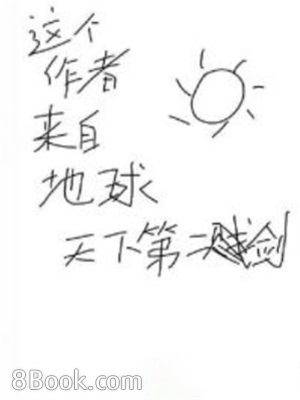 这个
作者
来自
地球
天下第二剑
8Book.com